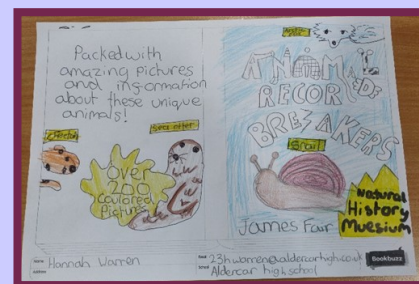 Packed with
amazing pictures
and information
about these unique
animals!
Cheetah
Over
200
Coulored
Pictures
ANIMAL
RECORD
BREAKERS
Snail
James Fair
Natural
History
Muesium
Name
Hannah Warren
Address
Email
23hwarren@aldercarhigh.co.uk
School
Aldercar high school
Bookbuzz